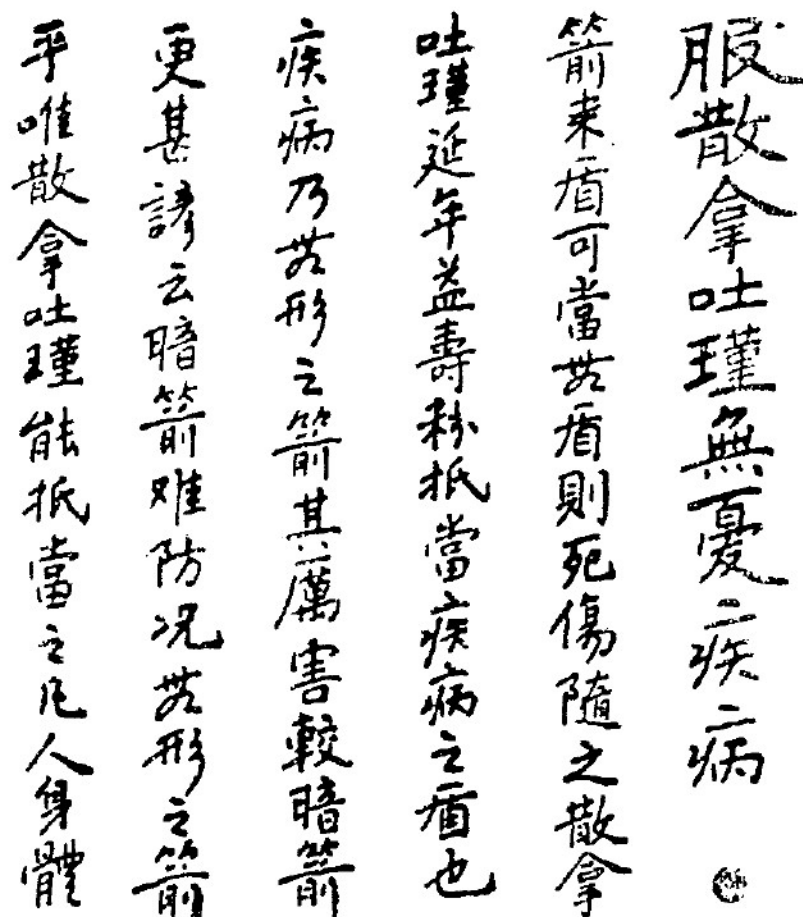 服散拿吐瑾無憂疾病
箭来盾可當無盾則死傷隨之散拿
吐瑾延年益壽粉抵當疾病之盾也
疾病乃無形之箭其厲害較暗箭
更甚諺云暗箭难防况無形之箭
乎唯散拿吐瑾能抵當之凡人身體